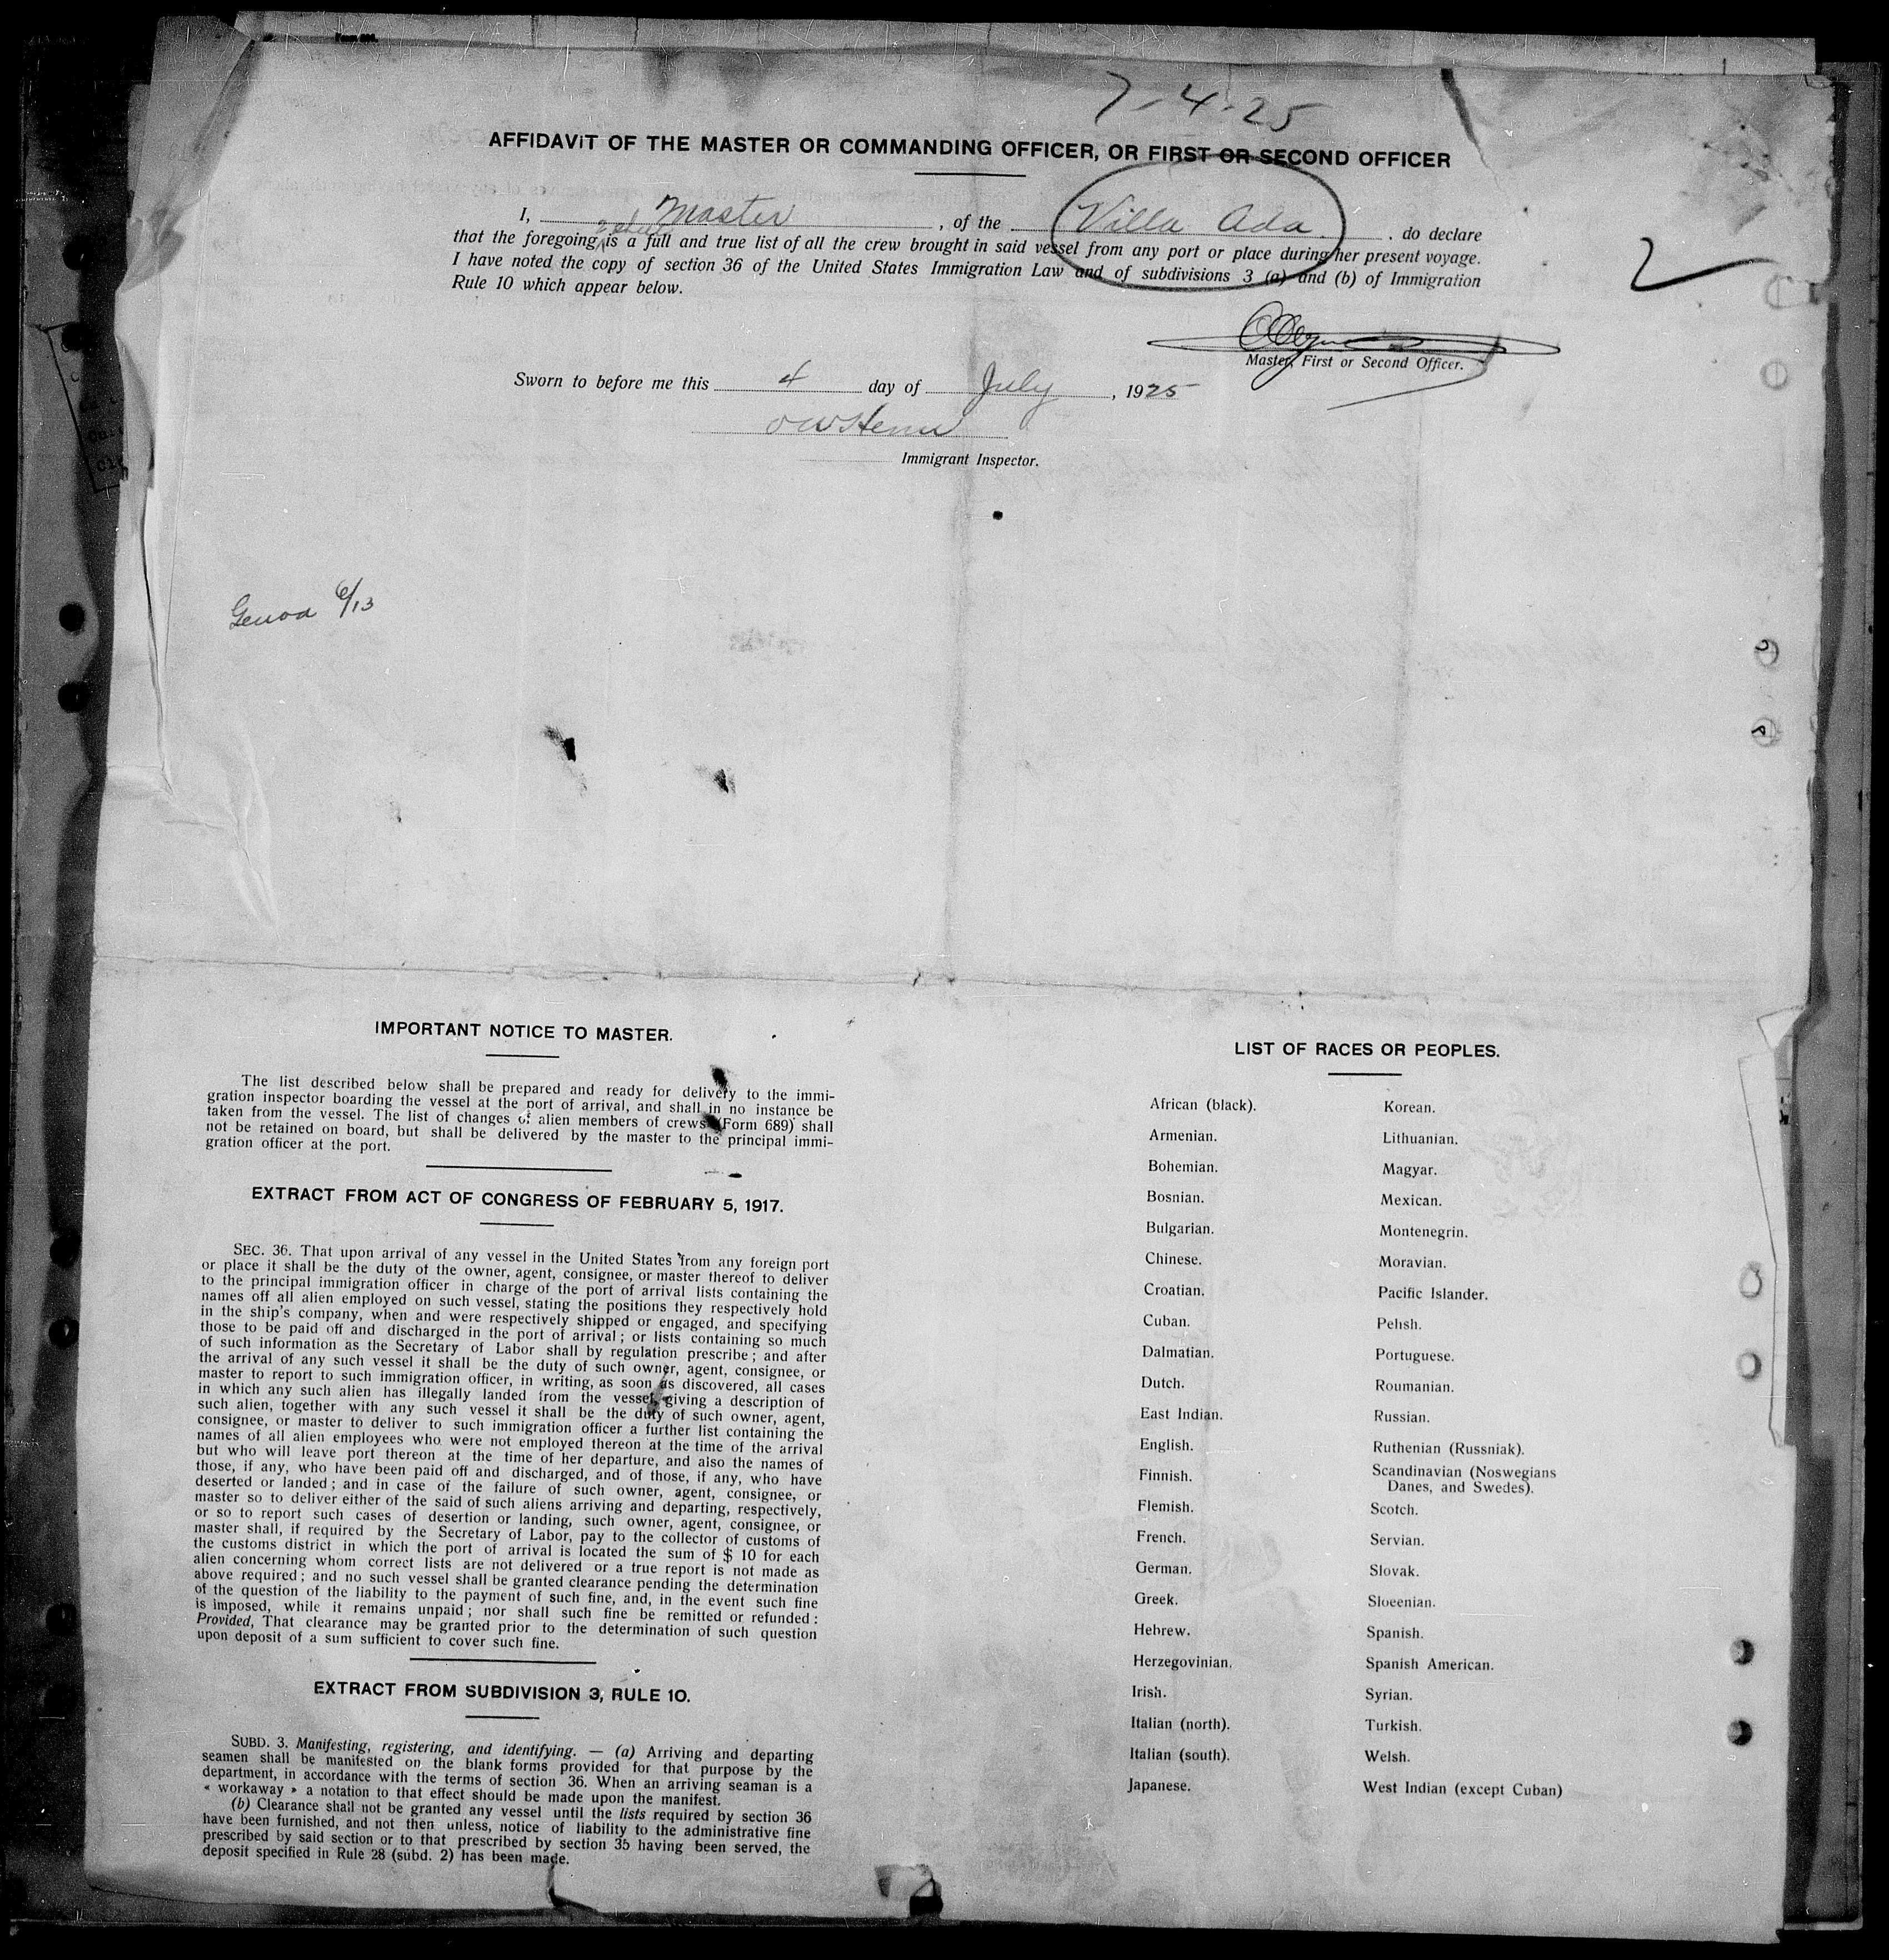 7-4-25
AFFIDAViT OF THE MASTER OR COMMANDING OFFICER, OR FIRST OR SECOND OFFICER
I, Master, of the Villa Ada. do declare
that the foregoing is a full and true list of all the crew brought in said vessel from any port or place during her present voyage.
I have noted the copy of section 36 of the United States Immigration Law and of subdivisions 3 (a) and (b) of Immigration
Rule 10 which appear below.
2
Master, First or Second Officer.
Sworn to before me this 4 day of July, 1925
Immigrant Inspector.
Genoa 6/13
IMPORTANT NOTICE TO MASTER.
The list described below shall be prepared and ready for delivery to the immi-
gration inspector boarding the vessel at the port of arrival, and shall in no instance be
taken from the vessel. The list of changes of alien members of crews (Form 689) shall
not be retained on board, but shall be delivered by the master to the principal immi-
gration officer at the port.
EXTRACT FROM ACT OF CONGRESS OF FEBRUARY 5, 1917.
SEC. 36. That upon arrival of any vessel in the United States from any foreign port
or place it shall be the duty of the owner, agent, consignee, or master thereof to deliver
to the principal immigration officer in charge of the port of arrival lists containing the
names off all alien employed on such vessel, stating the positions they respectively hold
in the ship's company, when and were respectively shipped or engaged, and specifying
those to be paid off and discharged in the port of arrival; or lists containing so much
of such information as the Secretary of Labor shall by regulation prescribe; and after
the arrival of any such vessel it shall be the duty of such owner, agent, consignee, or
master to report to such immigration officer, in writing, as soon as discovered, all cases
in which any such alien has illegally landed from the vessel, giving a description of
such alien, together with any such vessel it shall be the duty of such owner, agent,
consignee, or master to deliver to such immigration officer a further list containing the
names of all alien employees who were not employed thereon at the time of the arrival
but who will leave port thereon at the time of her departure, and also the names of
those, if any, who have been paid off and discharged, and of those, if any, who have
deserted or landed; and in case of the failure of such owner, agent, consignee, or
master so to deliver either of the said of such aliens arriving and departing, respectively,
or so to report such cases of desertion or landing, such owner, agent, consignee, or
master shall, if required by the Secretary of Labor, pay to the collector of customs of
the customs district in which the port of arrival is located the sum of $ 10 for each
alien concerning whom correct lists are not delivered or a true report is not made as
above required; and no such vessel shall be granted clearance pending the determination
of the question of the liability to the payment of such fine, and, in the event such fine
is imposed, while it remains unpaid; nor shall such fine be remitted or refunded:
Provided, That clearance may be granted prior to the determination of such question
upon deposit of a sum sufficient to cover such fine.
EXTRACT FROM SUBDIVISION 3, RULE 10.
SUBD. 3. Manifesting, registering, and identifying. — (a) Arriving and departing
seamen shall be manifested on the blank forms provided for that purpose by the
department, in accordance with the terms of section 36. When an arriving seaman is a
« workaway » a notation to that effect should be made upon the manifest.
(b) Clearance shall not be granted any vessel until the lists required by section 36
have been furnished, and not then unless, notice of liability to the administrative fine
prescribed by said section or to that prescribed by section 35 having been served, the
deposit specified in Rule 28 (subd. 2) has been made.
LIST OF RACES OR PEOPLES.
African (black).
Armenian.
Bohemian.
Bosnian.
Bulgarian.
Chinese.
Croatian.
Cuban.
Dalmatian.
Dutch.
East Indian.
English.
Finnish.
Flemish.
French.
German.
Greek.
Hebrew.
Herzegovinian.
Irish.
Italian (north).
Italian (south).
Japanese.
Korean.
Lithuanian.
Magyar.
Mexican.
Montenegrin.
Moravian.
Pacific Islander.
Pelish.
Portuguese.
Roumanian.
Russian.
Ruthenian (Russniak).
Scandinavian (Noswegians
Danes, and Swedes).
Scotch.
Servian.
Slovak.
Sloeenian.
Spanish.
Spanish American.
Syrian.
Turkish.
Welsh.
West Indian (except Cuban)